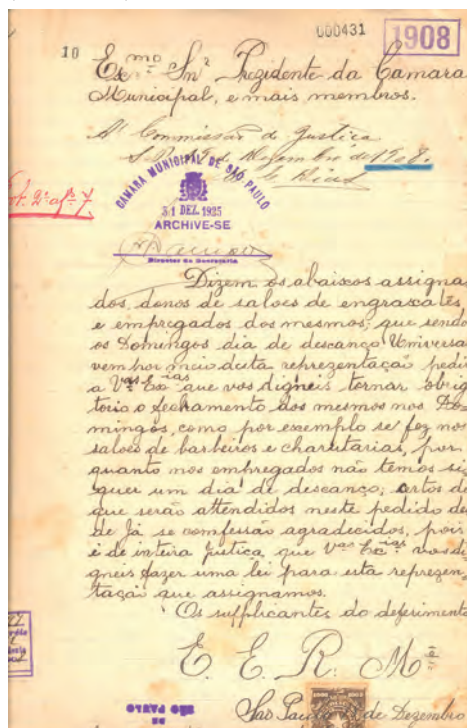 000431
1908
10
Exmo Snr Prezidente da Camara
Municipal, e mais membros.
Á Commissão de Justiça
S. P. Dezembro de 1908.
Dias
CAMARA MUNICIPAL DE SÃO PAULO
31 DEZ. 1925
ARCHIVE-SE
Director da Secretaria
Dizem os abaixos assigna
dos, donos de saloes de engraxates
e empregados dos mesmos, que sendo
os Domingos dia de descanço Universa
vem por meio desta reprezentaçaõ pedir
a Vas Exias que vos digneis tornar obrig
torio o fechamento dos mesmos nos Do
mingos, como por exemplo se fez nos
saloes de barbeiros e charutarias, por
quanto nos empregados não temos si
quer um dia de descanço; certos de
que serão attendidos neste pedido de
de já se comfessão agradecidos, pois
é de inteira justiça, que Vas Exias vos di
gneis fazer uma lei para esta reprezen
taçaõ que assignamos.
Os supplicantes do deferimento
E. E. R. Mce
São Paulo de Dezembro
SÃO PAULO